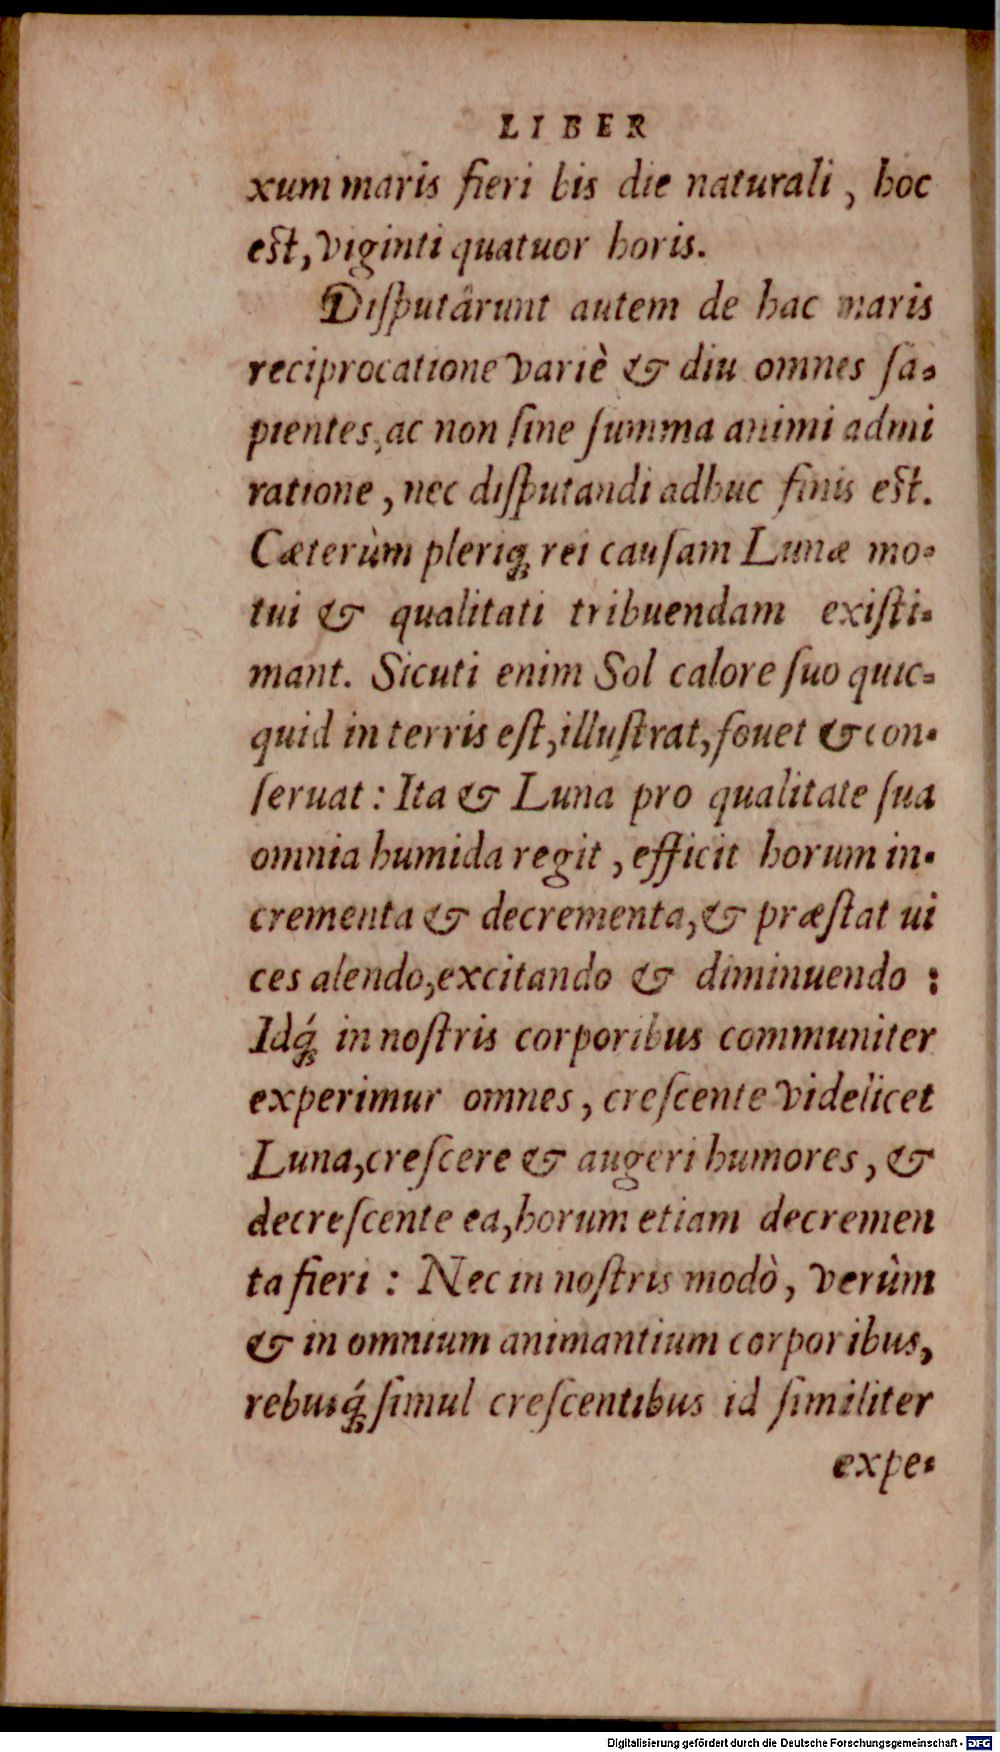 LIBER
xum maris fieri bis die naturali, hoc
est, viginti quatuor horis.
Diſputârunt autem de hac maris
reciprocatione variè & diu omnes ſa-
pientes, ac non ſine ſumma animi admi
ratione, nec diſputandi adhuc finis est.
Cæterùm pleriq; rei cauſam Lunæ mo-
tui & qualitati tribuendam exiſti-
mant. Sicuti enim Sol calore ſuo quic-
quid in terris eſt, illuſtrat, fouet & con-
ſeruat: Ita & Luna pro qualitate ſua
omnia humida regit, efficit horum in-
crementa & decrementa, & præſtat ui
ces alendo, excitando & diminuendo:
Idq́; in noſtris corporibus communiter
experimur omnes, creſcente videlicet
Luna, creſcere & augeri humores, &
decreſcente ea, horum etiam decremen
ta fieri: Nec in noſtris modò, verùm
& in omnium animantium corporibus,
rebusq́; ſimul creſcentibus id ſimiliter
expe-
Digitalisierung gefördert durch die Deutsche Forschungsgemeinschaft - DFG